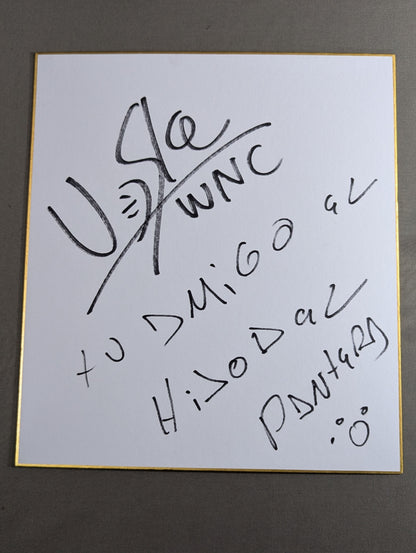 WNC
tU AMiGO eL
HiJO DeL
PANteRA